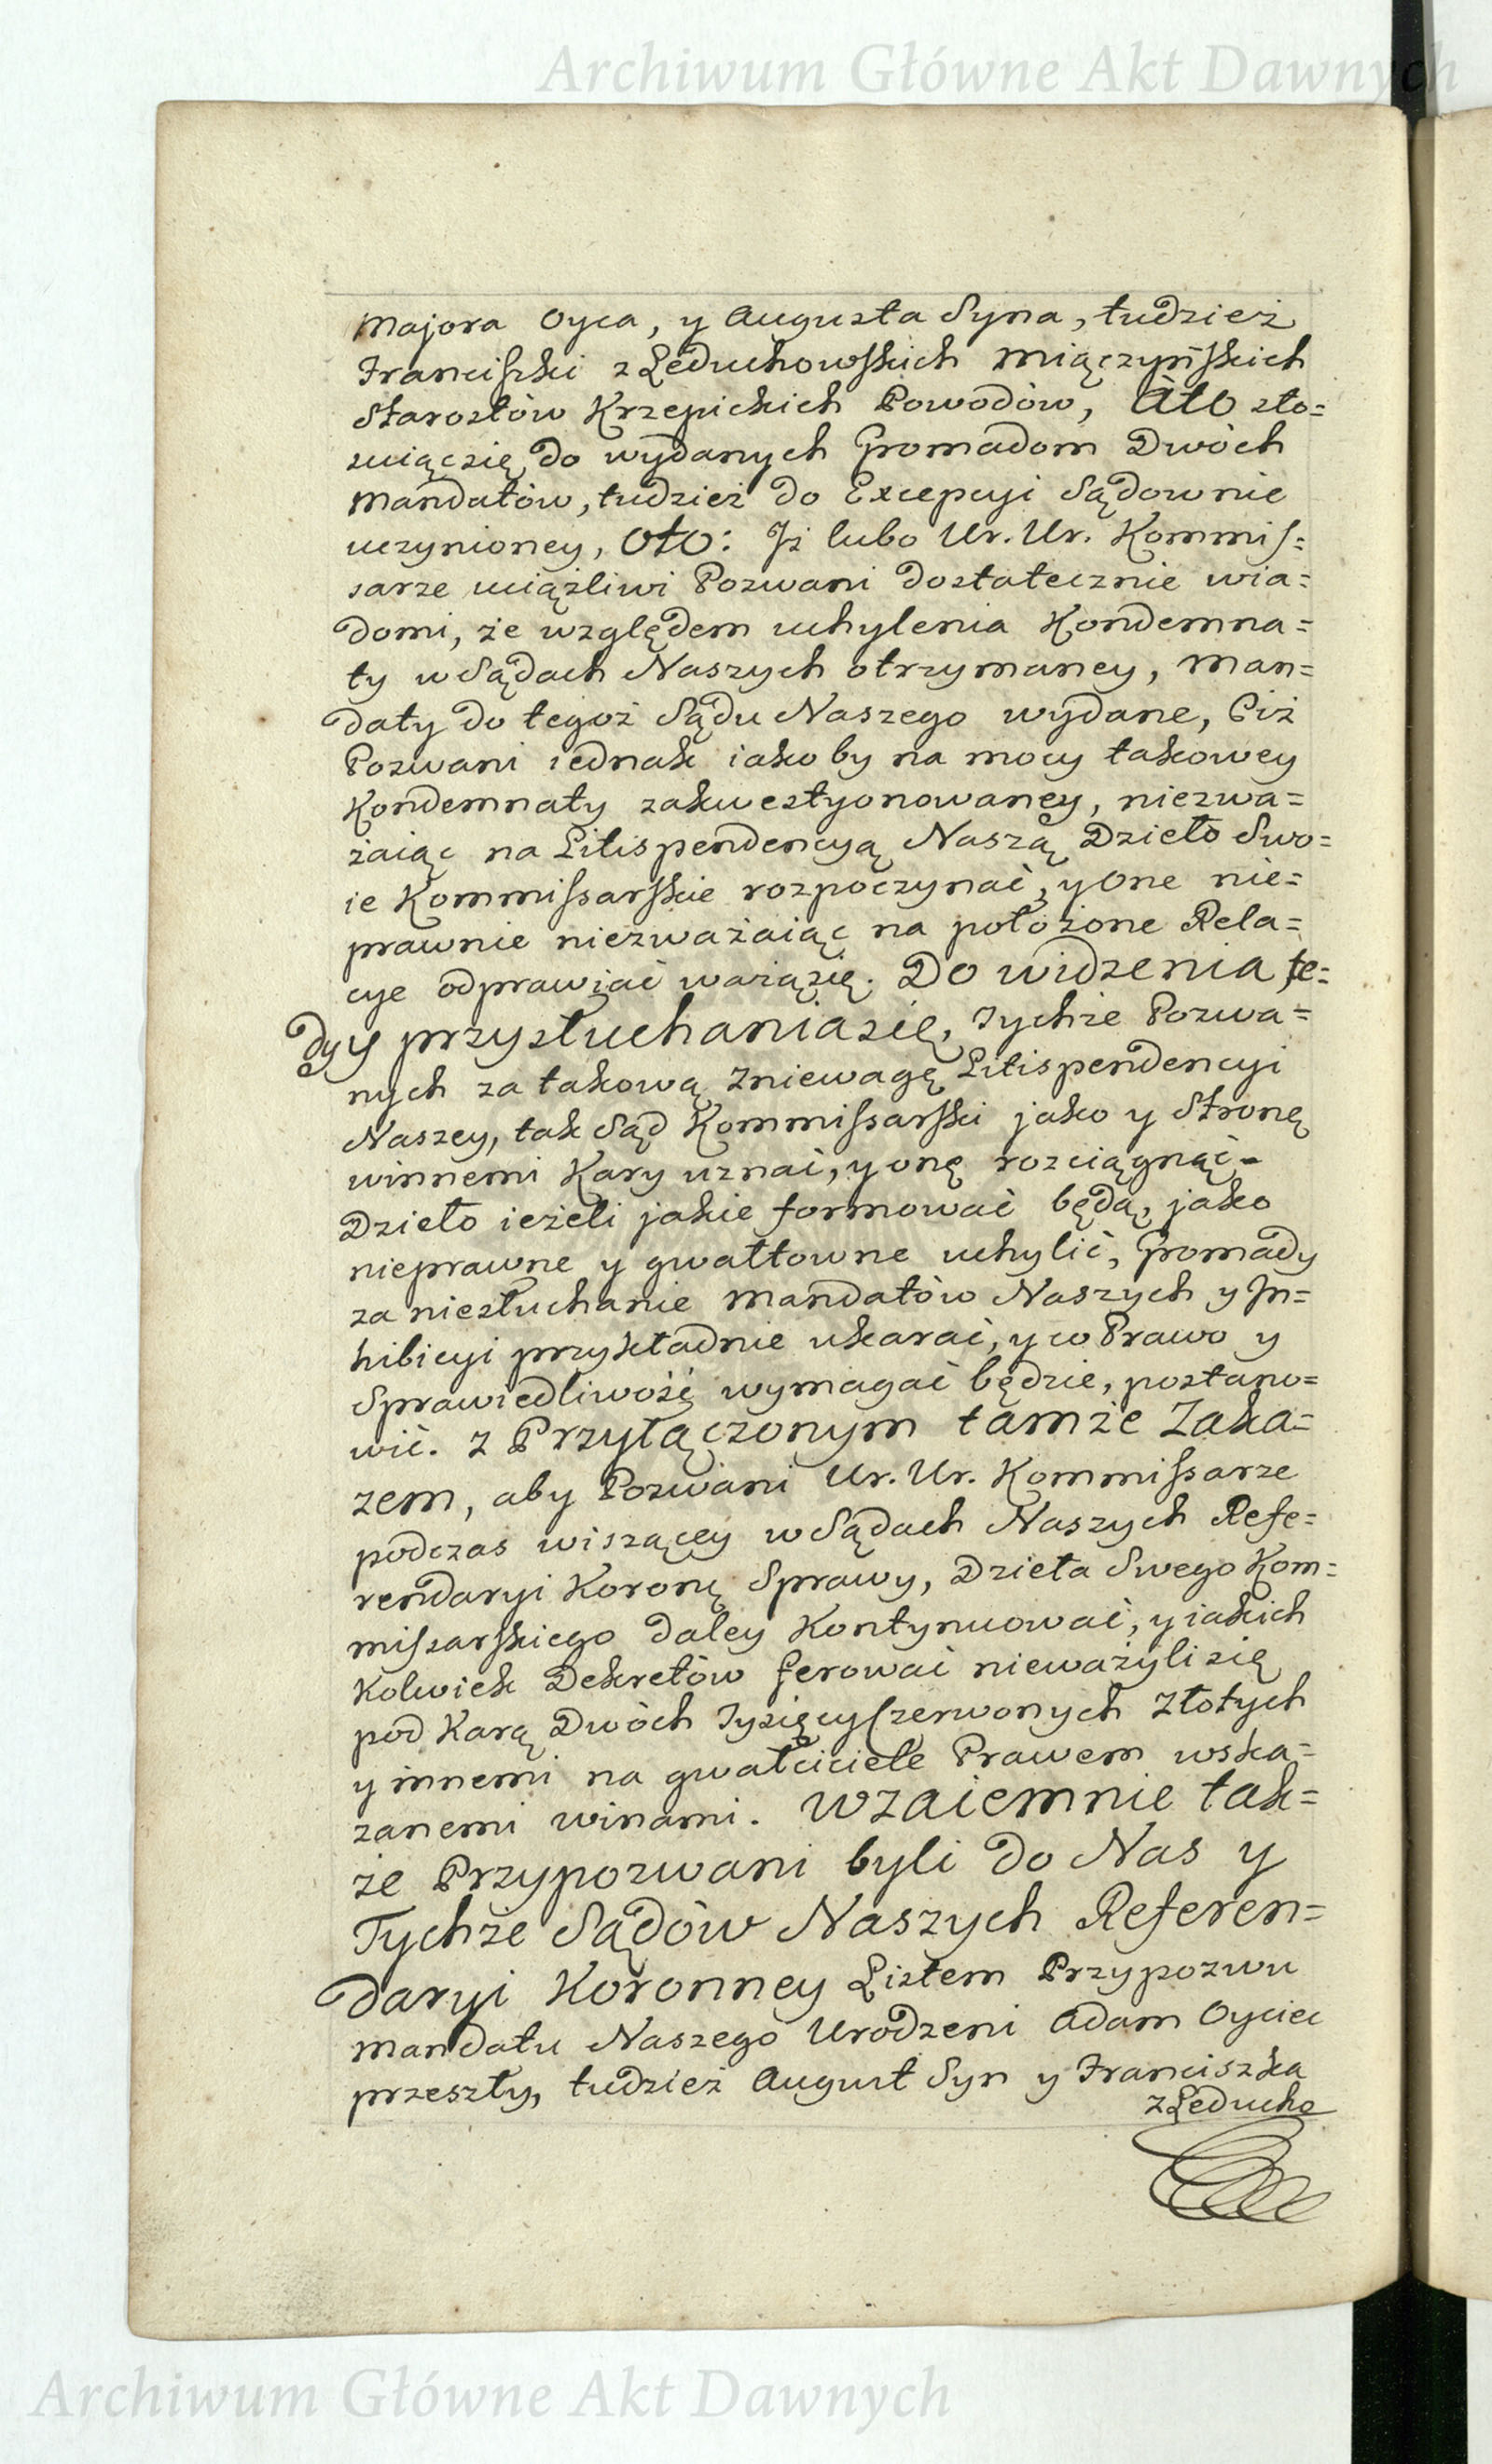 Archiwum Główne Akt Dawnych
Majora Oyca, y Augusta Syna, tudzież
Franciszki z Leduchowskich Miączyńskich
Starostów Krzepickich Powodów, Ato sto=
suiącsię do wydanych Gromadom Dwóch
Mandatów, tudzież do Excepcyi Sądownie
uczynioney, Oto: Iż lubo Ur. Ur. Kommis=
sarze uciążliwi Pozwani dostatecznie wia=
domi, że względem uchylenia Kondemna=
ty w Sądach Naszych otrzymaney, Man=
daty do tegoż Sądu Naszego wydane, Ciż
Pozwani iednak iakoby na mocy takowey
Kondemnaty zakwestyonowaney, niezwa=
żaiąc na Litispendencyą Naszą Dzieło Swo=
ie Kommissarskie rozpoczynać, y One nie=
prawnie niezważaiąc na położone Rela=
cye odprawiać ważąsię. Do widzenia te=
dy y przysłuchaniasię, Tychże Pozwa=
nych za takową Zniewagę Litispendencyi
Naszey, tak Sąd Kommissarski jako y Stronę
winnemi Kary uznać, y onę rozciągnąć-
Dzieło ieżeli jakie formować będą, jako
nieprawne y gwałtowne uchylić, Gromady
za niesłuchanie Mandatów Naszych y In=
hibicyi przykładnie ukarać, y co Prawo y
Sprawiedliwość wymagać będzie, postano=
wić. z Przyłączonym tamże Zaka=
zem, aby Pozwani Ur. Ur. Kommissarze
podczas wiszącey w Sądach Naszych Refe=
rendaryi Koronę Sprawy, Dzieła Swego Kom=
missarskiego daley Kontynuować, y iakich
Kolwiek Dekretów ferować nieważylisię
pod Karą Dwóch Tysięcy Czerwonych Złotych
y innemi na gwałciciele Prawem wska=
zanemi winami. Wzaiemnie tak=
że Przypozwani byli do Nas y
Tychże Sądów Naszych Referen=
daryi Koronney Listem Przypozwu
Mandatu Naszego Urodzeni Adam Oyciec
przeszły, tudzież August Syn y Franciszka
z Leducho
Archiwum Główne Akt Dawnych